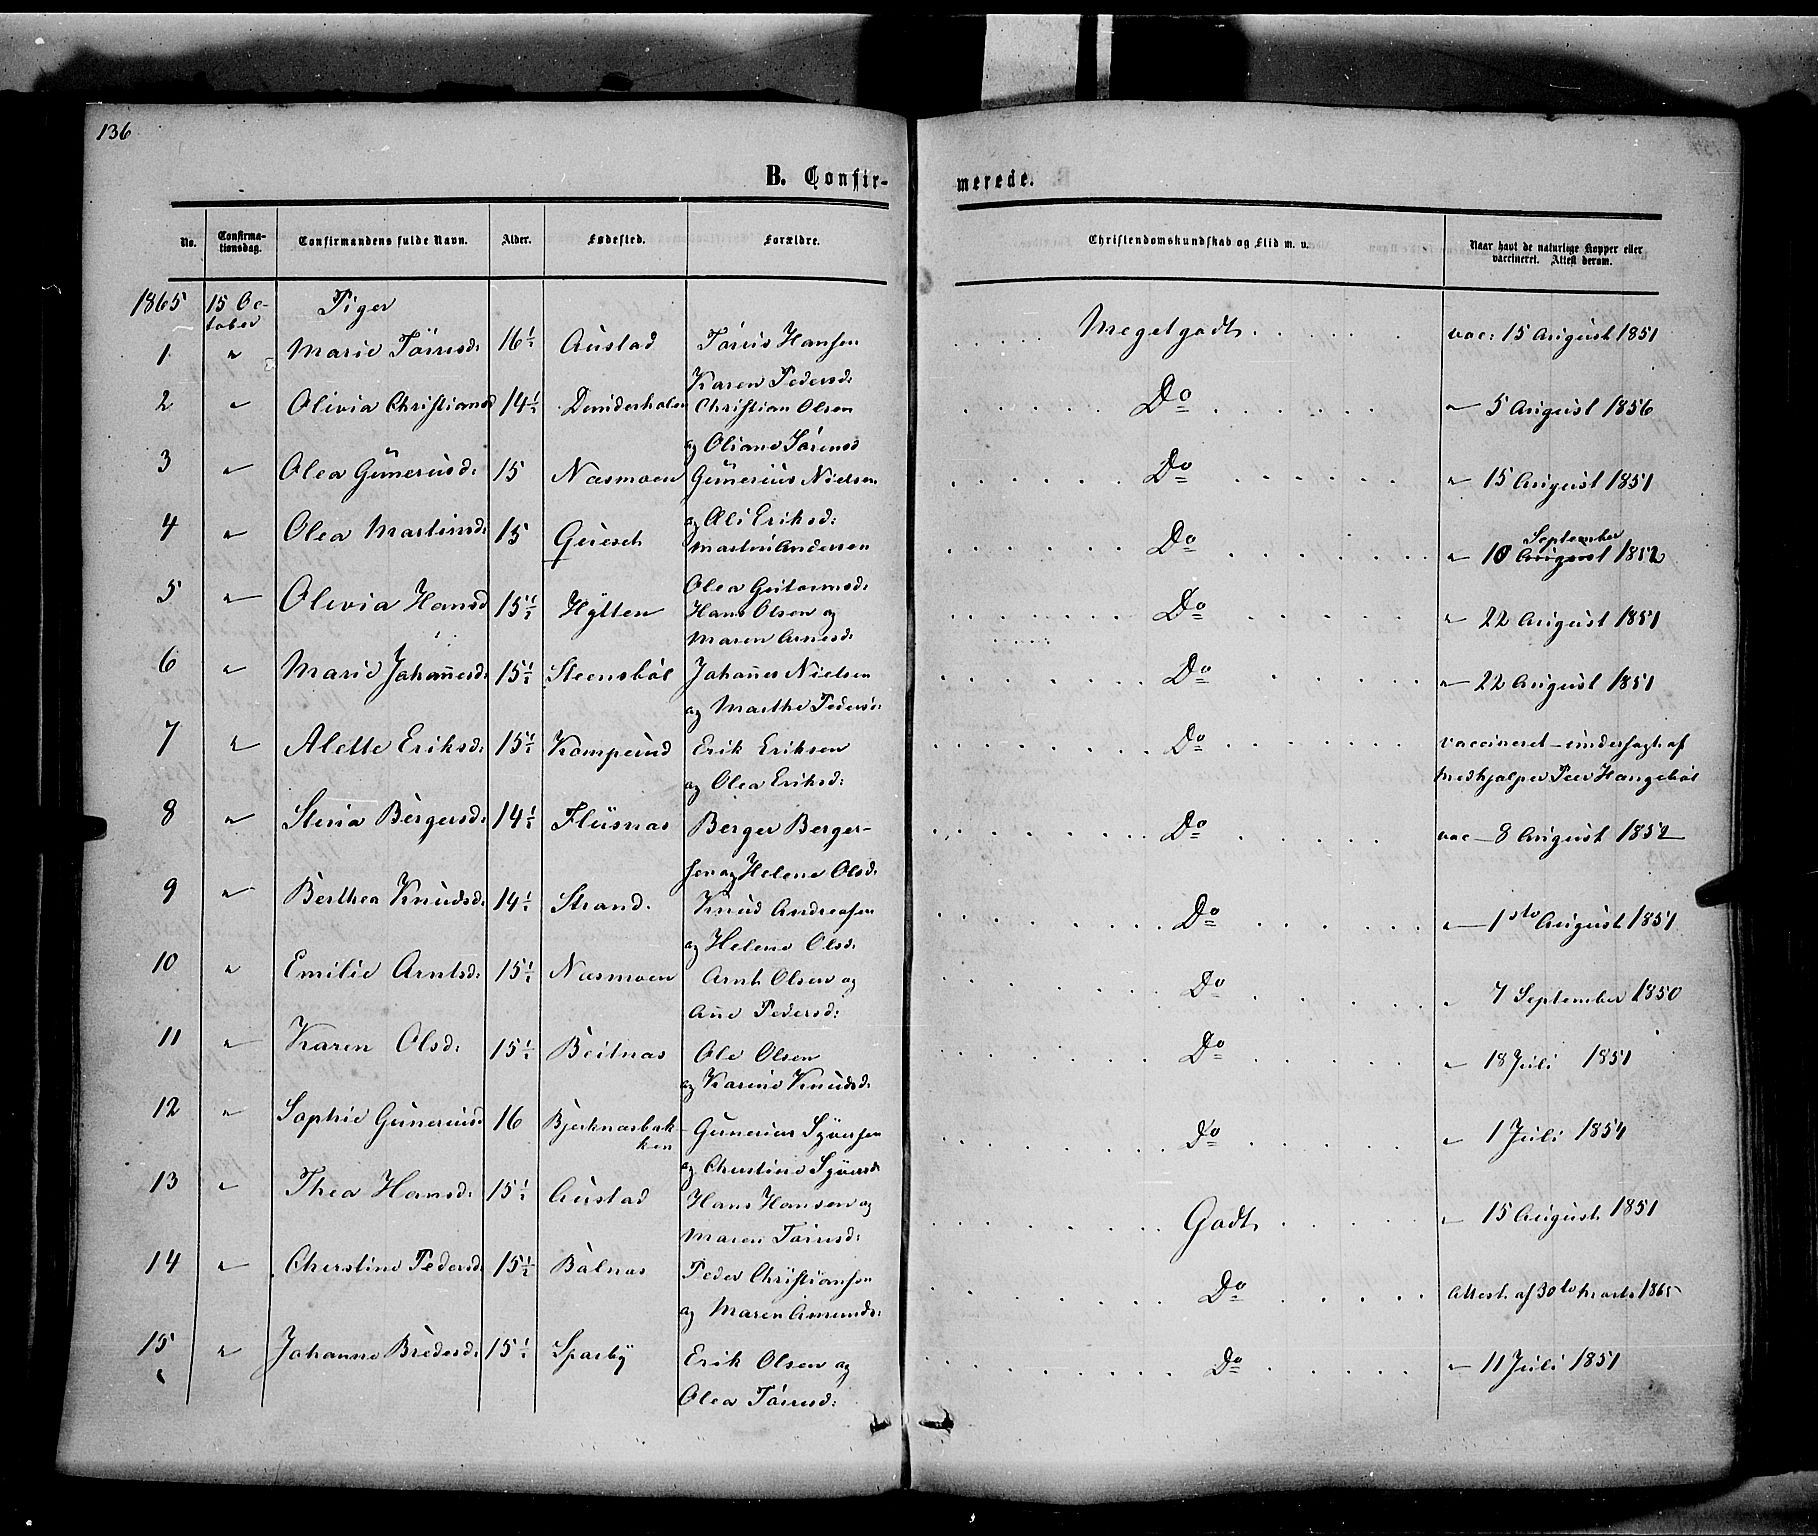 136
B. Confirmerede.
No. Confirmationsdag. Confirmandens fulde Navn. Alder. Fødested. Forældre. Christendomskundskab og Flid m. v. Naar havt de naturlige Kopper eller vaccineret. Attest derom.
1865 15 October Piger
1 " Marie Törrisd: 16½ Austad Törris Hansen Karen Pedersd: Megetgodt vac: 15 August 1851
2 " Olivia Christiansd 14½ Christian Olsen og Oliane Sörensd Do " 5 August 1856
3 " Olea Gunerusd: 15 Næsmoen Gunerius Nielsen og Eli Eriksd: Do " 15 August 1851
4 " Olea Martinsd: 15 Martin Andersen Olea Guttormsd: Do " 10 September 1852
5 " Olivia Hansd 15½ Hÿtten Hans Olsen og Maren Arnesd: Do " 22 August 1851
6 " Marie Johanesd: 15½ Steensböl Johanes Nielsen og Marthe Pedersd: Do " 22 August 1851
7 " Alette Eriksd: 15½ Erik Eriksen og Olea Eriksd: Do vaccineret – undersøgt af Medhjelper Peer Haugsböl
8 " Stina Bergersd: 14½ Flusnæs Berger Bergersen og Helene Olsd: Do vac – 8 August 1852
9 " Berthea Knudsd: 14½ Strand. Knud Andreasen og Helene Olsd: Do " 1ste August 1851
10 " Emilie Arntsd: 15½ Næsmoen Arnt Olsen og Ane Pedersd: Do " 7 September 1850
11 " Karen Olsd: 15½ Beitnæs Ole Olsen og Karine Knudsd: Do " 18 Juli 1851
12 " Sophie Guneriusd 16 Bjerknæsbakken Gunerius Syversen og Cherstine Syversd: Do " 1 Juli 1854
13 " Thea Hansd: 15½ Austad Hans Hansen og Maren Törrisd: Godt " 15 August 1851
14 " Cherstine Pedersd 15½ Bålnæs Peder Christiansen og Maren Amundsd: Do Attest af 30te Marts 1865
15 " Johanne Bredesd: 15½ Sparby Erik Olsen og Olea Törrisd: Do " 11 Juli 1851